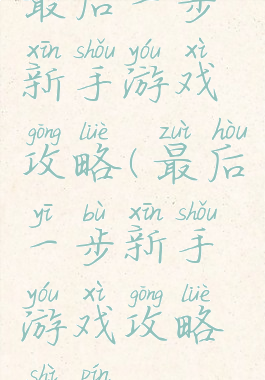 最后一步
xīn shǒu yóu xì
新手游戏
gōng lüè zuì hòu
攻略(最后
yī bù xīn shǒu
一步新手
yóu xì gōng lüè
游戏攻略
shì pín